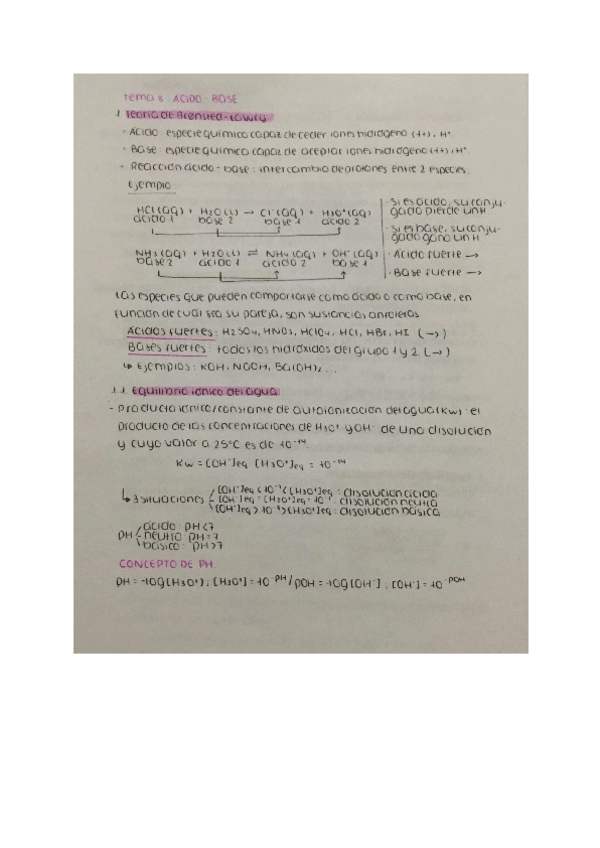 Tema 8: ÁCIDO - BASE
1. Teoría de Brönsted-Lowry
- Ácido: especie química capaz de ceder iones hidrógeno (H+), H+
- Base: especie química capaz de aceptar iones hidrógeno (H+), H+.
- Reacción ácido-base: intercambio de protones entre 2 especies.
Ejemplo:
HCl(aq) + H2O(l) → Cl-(aq) + H3O+(aq)
ácido 1 base 2 base 1 ácido 2
NH3(aq) + H2O(l) ⇌ NH4(aq) + OH-(aq)
base 2 ácido 1 ácido 2 base 1
· Si es ácido, su conju-
gado pierde un H
· Si es base, su conju-
gado gana un H
· Ácido fuerte →
· Base fuerte →
Las especies que pueden comportarse como ácido o como base, en
función de cual sea su pareja, son sustancias anfóteras
Ácidos fuertes: H2SO4, HNO3, HClO4, HCl, HBr, HI (→)
Bases fuertes: todos los hidróxidos del grupo 1 y 2 (→)
↳ Ejemplos: KOH, NaOH, Ba(OH)2, ...
1.1. Equilibrio iónico del agua
- Producto iónico/constante de autoionización del agua (Kw): el
producto de las concentraciones de H3O+ y OH- de una disolución
y cuyo valor a 25°C es de 10-14.
Kw = [OH-]eq [H3O+]eq = 10-14
↳ 3 situaciones
[OH-]eq < 10-7 < [H3O+]eq : disolución ácida
[OH-]eq = [H3O+]eq = 10-7 : disolución neutra
[OH-]eq > 10-7 > [H3O+]eq : disolución básica
pH
ácido: pH<7
neutro: pH=7
básico: pH>7
CONCEPTO DE PH
pH = -log[H3O+] ; [H3O+] = 10-pH / pOH = -log[OH-] ; [OH-] = 10-pOH